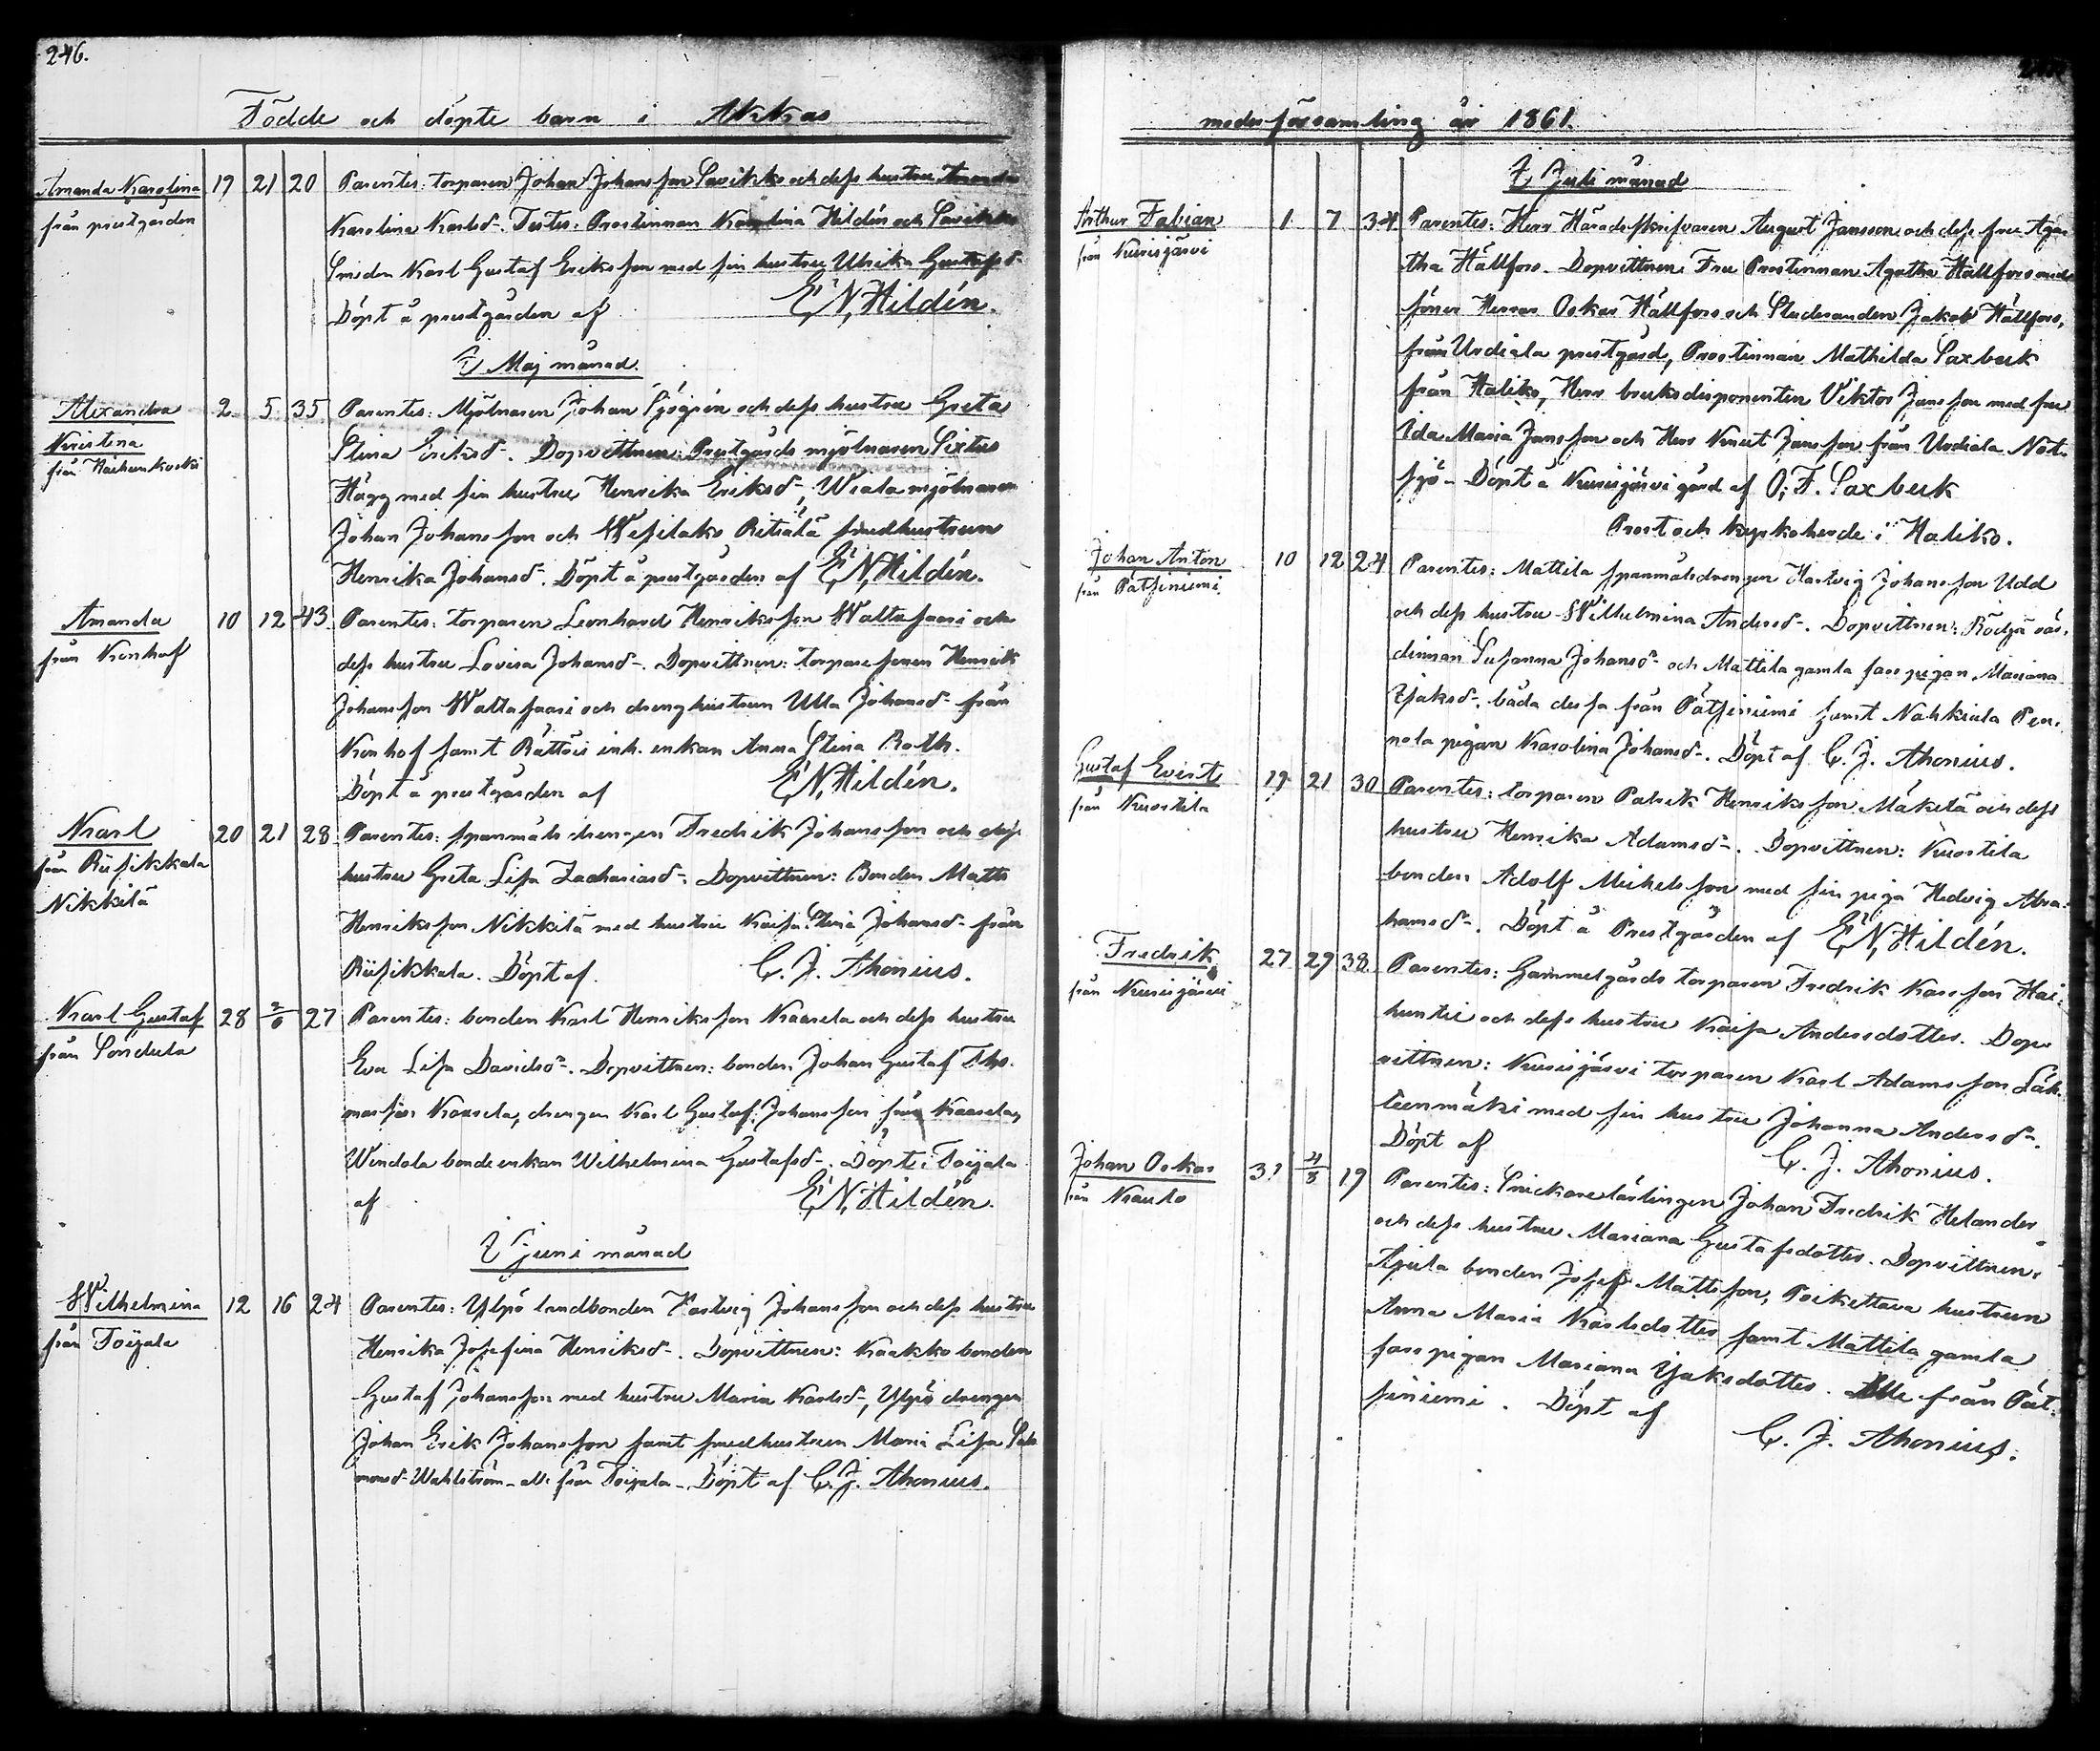 246.
Födde och döpte barn i Akkas
Amanda Karolina 17 21 20 Parentes: torparen Johan Johansson Savikko och dess hustru Amanda
från prestgården Karolina Karlsdr. Testes: Prostinnan Karolina Hildén och
Smeden Karl Gustaf Eriksson med sin hustru Ulrika Gustafsdr
Döpt å prestgården af E.N. Hildén.
I Maj månad.
Alexandra 2 5 35 Parentes: Mjölnaren Johan Sjögrén och dess hustru Greta
Kristina Stina Eriksdr. Dopvittnen: Prestgårds mjölnaren Sixtus
från Hägg med sin hustru Henrika Eriksdr, Wiala mjölnaren
Johan Johansson och Wesilaks Ritsälä smedhustrun
Henrika Johansdr. Döpt å prestgården af E.N. Hildén.
Amanda 10 12 43 Parentes: torparen Leonhard Henriksson Waltasaari och
från Kronhof dess hustru Lovisa Johansdr. Dopvittnen: torparesonen Henrik
Johansson Waltasaari och drenghustrun Ulla Johansdr från
Kronhof samt Rättöis inh. enkan Anna Stina Roth.
Döpt å prestgården af E.N. Hildén.
Karl 20 21 28 Parentes: spanmåls drengen Fredrik Johansson och dess
från Riisikkala hustru Greta Lisa Zachariasdr. Dopvittnen: Bonden Matts
Nikkilä Henriksson Nikkilä med hustru Kaisa Stina Johansdr från
Riisikkala. Döpt af C. J. Ahonius.
Karl Gustaf 28 2/6 27 Parentes: bonden Karl Henriksson Kaarela och dess hustru
från Sondula Eva Lisa Davidsdr. Dopvittnen: bonden Johan Gustaf Tho-
masson Kaarela, drengen Karl Gustaf Johansson från Kaarela,
Windola bondeenkan Wilhelmina Gustafsdr. Döpt i Toijala
af E.N. Hildén.
I Juni månad
Wilhelmina 12 16 24 Parentes: Ylpö landbonden Hartvig Johansson och dess hustru
från Toijala Henrika Josefina Henriksdr. Dopvittnen: Kaakko bonden
Gustaf Johansson med hustru Maria Karlsdr, Ylpö drengen
Johan Erik Johansson samt smedhustrun Maria Lisa Salo
monsdr Wahlström, alla från Toijala. Döpt af C. J. Ahonius.
moderförsamling år 1861.
I Juli månad
Arthur Fabian 1 7 34 Parentes: Herr Häradsskrifvaren August Jansson och dess fru Aga-
från Kurisjärvi tha Hällfors. Dopvittnen: Fru Prostinnan Agatha Hällfors med
söner Herrar Oskar Hällfors och Studeranden Jakob Hällfors,
från Urdiala prestgård, Prostinnan Mathilda Saxbeck
från Haliko, Herr bruksdisponenten Viktor Jansson med fru
Ida Maria Jansson och Herr Knut Jansson från Urdiala Nöt-
sjö. Döpt å Kurisjärvi gård af O. F. Saxbeck
Prost och kyrkoherde i Haliko.
Johan Anton 10 12 24 Parentes: Mattila spanmålsdrengen Hartvig Johansson Udd
från Pätsiniemi. och dess hustru Wilhelmina Andersdr. Dopvittnen: Rödjä vär-
dinnan Susanna Johansdr och Mattila gamla faar pigan Mariana
Isaksdr, båda dessa från Pätsiniemi samt Nahkiala Pen-
nola pigan Karolina Johansdr. Döpt af C. J. Ahonius.
Gustaf Evert 19 21 30 Parentes: torparen Patrik Henriksson Mäkelä och dess
från Kurstila hustru Henrika Adamsdr. Dopvittnen: Kurstila
bonden Adolf Mickelsson med sin piga Hedvig Abra-
hamsdr. Döpt å Prestgården af E.N. Hildén.
Fredrik 27 29 38 Parentes: Gammelgårds torparen Fredrik Karsson Hai-
från Kurisjärvi huntie och dess hustru Kaisa Andersdotter. Dop-
vittnen: Kurisjärvi torparen Karl Adamsson Läh-
teenmäki med sin hustru Johanna Andersdr.
Döpt af C. J. Ahonius.
Johan Oskar 31 4/8 19 Parentes: Snickarelärlingen Johan Fredrik Helander
från Kauto och dess hustru Mariana Gustafsdotter. Dopvittnen:
Äjula bonden Josef Mattsson, Poikettava hustrun
Anna Maria Karlsdotter samt Mattila gamla
faar pigan Mariana Isaksdotter. Alle från Pät-
siniemi. Döpt af C. J. Ahonius.